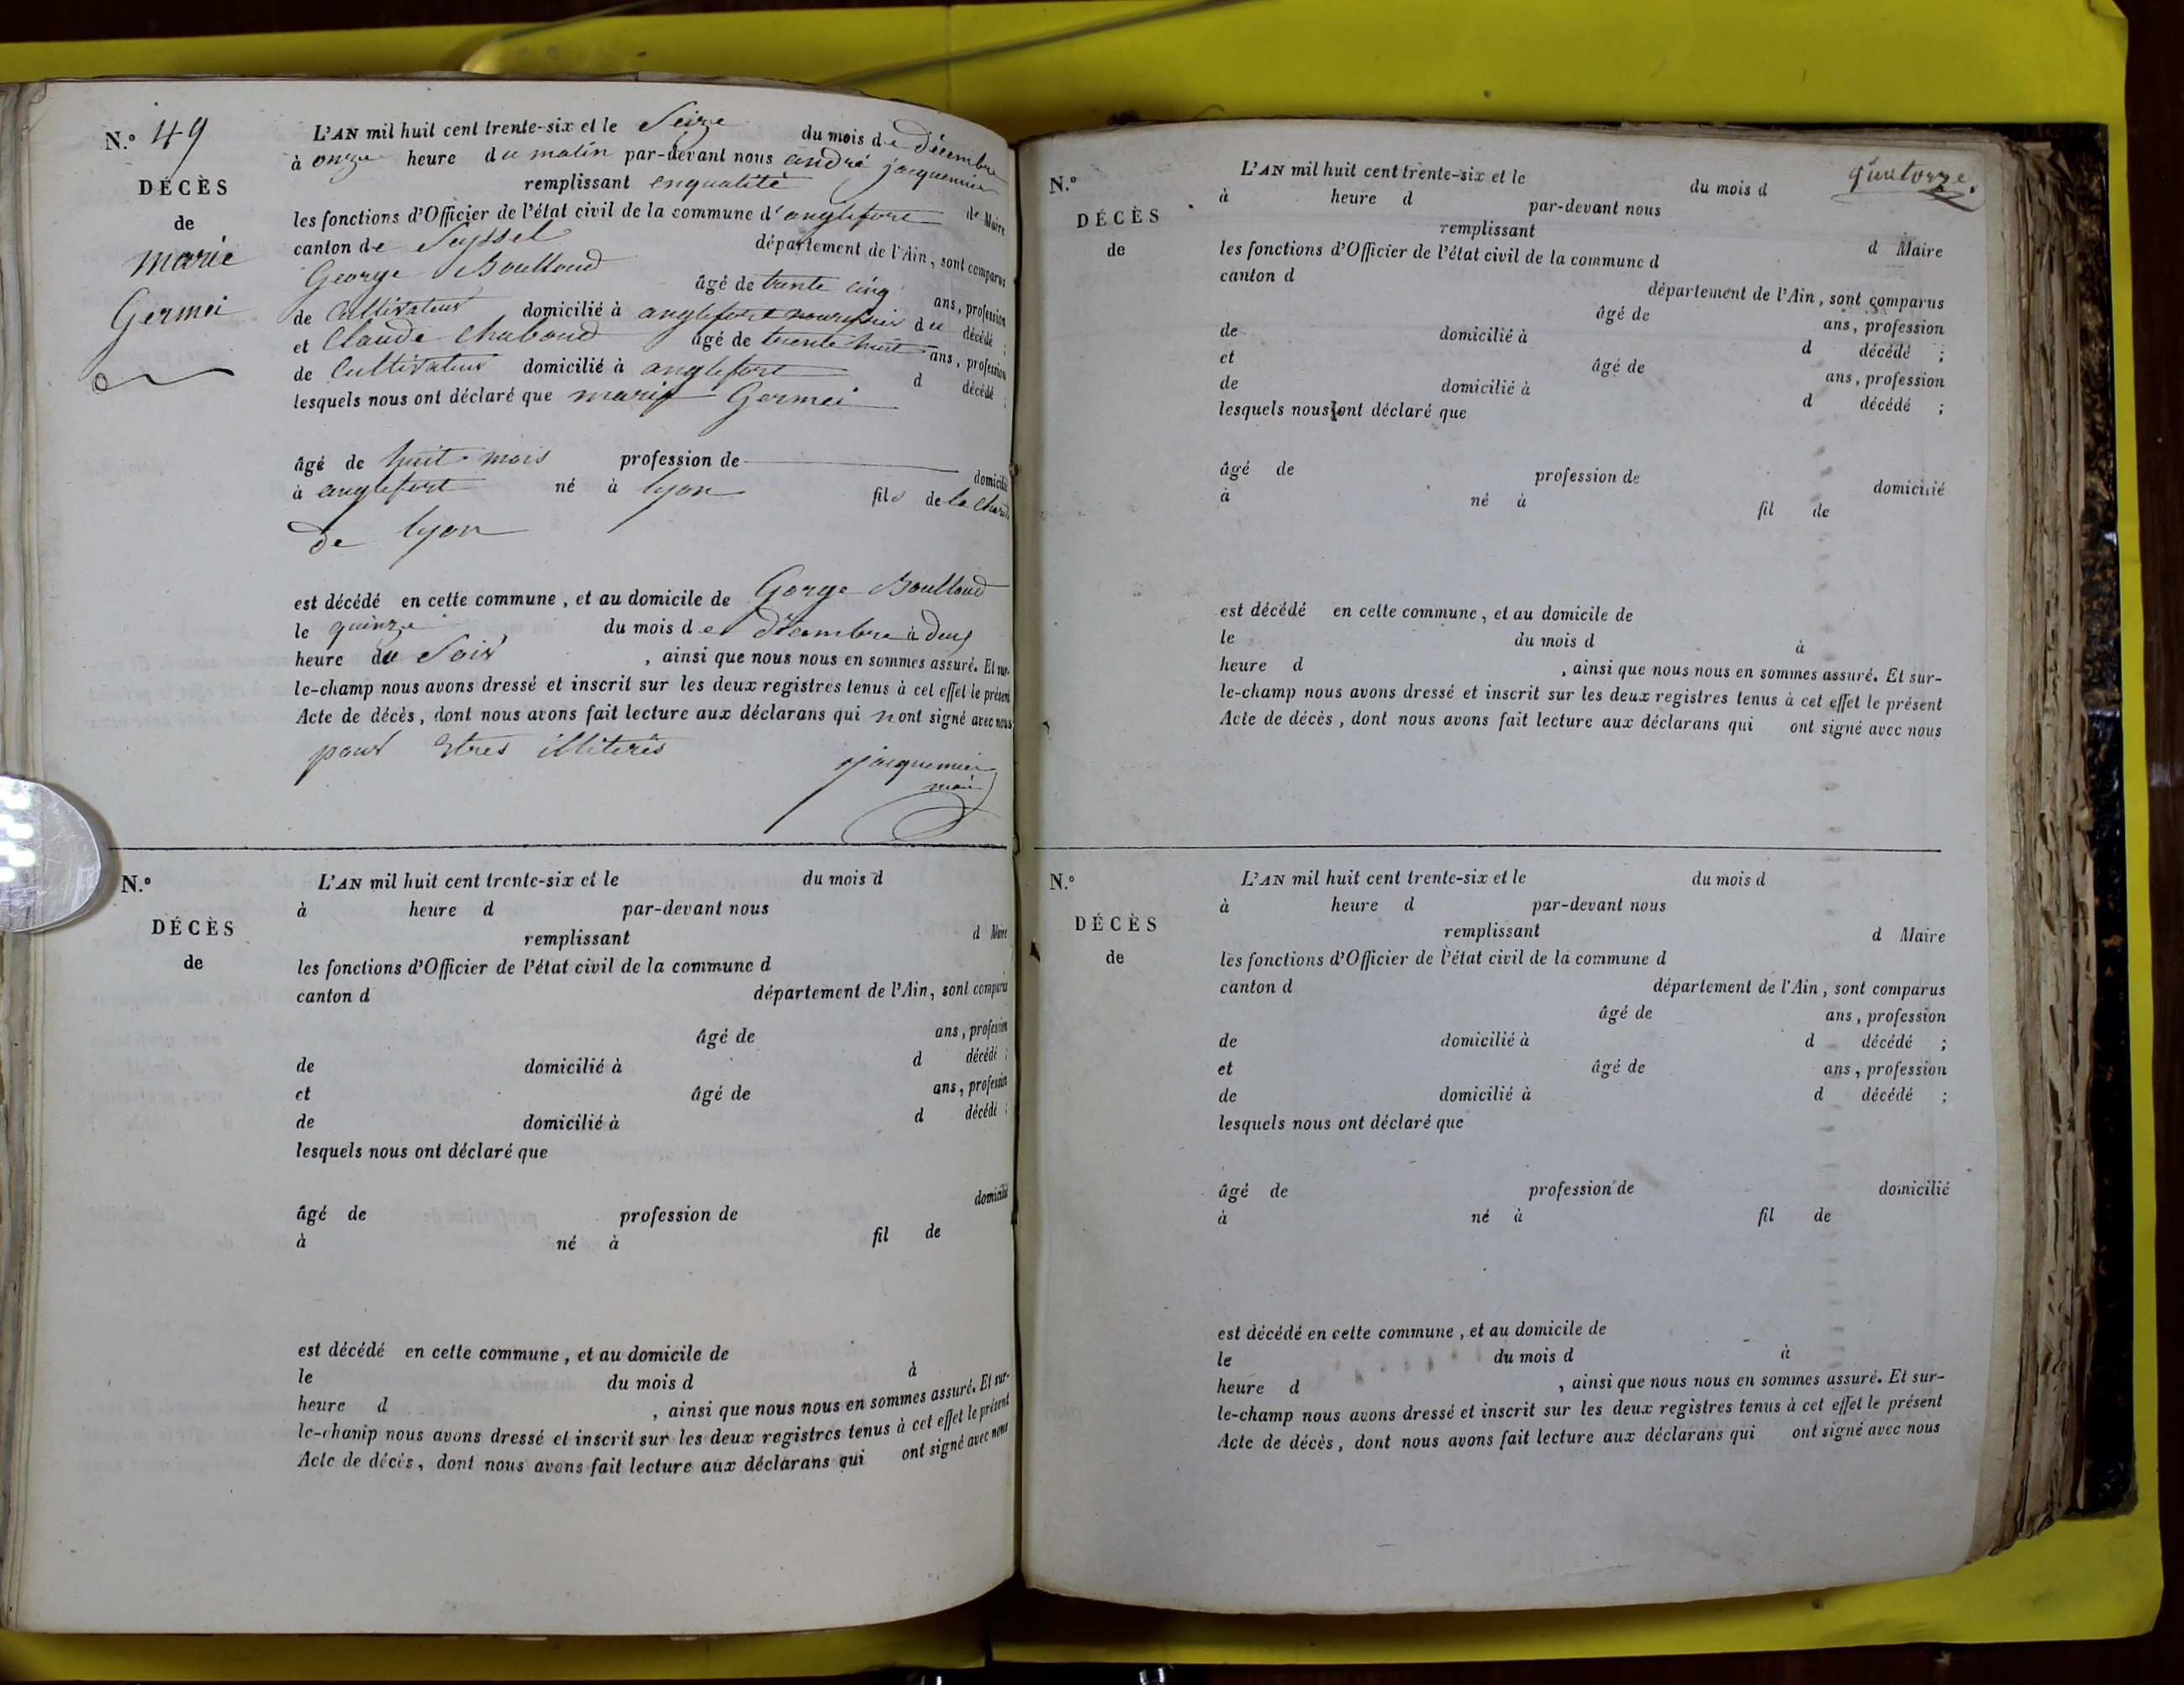 N.° 49
DÉCÈS
de
marie
Germei
L'AN mil huit cent trente-six et le Seize du mois de Décembre
à onze heure du matin par-devant nous andré jacquemier
remplissant enqualité de Maire
les fonctions d'Officier de l'état civil de la commune d'anglefort
canton de Seyssel département de l'Ain, sont comparus
George Boulloud âgé de trente cinq ans, profession
de Cultivateur domicilié à anglefort nourrissier du décédé ;
et Claude Chaboud âgé de trente huit ans, profession
de Cultivateur domicilié à anglefort d décédé ;
lesquels nous ont déclaré que marie Germei
âgé de huit mois profession de domicilié
à anglefort né à lyon fils de la Charité
de lyon
est décédé en cette commune, et au domicile de Gorge Boulloud
le quinze du mois de décembre à deux
heure du Soir , ainsi que nous nous en sommes assuré. Et sur-
le-champ nous avons dressé et inscrit sur les deux registres tenus à cet effet le présent
Acte de décès, dont nous avons fait lecture aux déclarans qui nont signé avec nous
pour Etres illiterés
jacquemier
maire
N.°
DÉCÈS
de
L'AN mil huit cent trente-six et le du mois d
à heure d par-devant nous
remplissant d Maire
les fonctions d'Officier de l'état civil de la commune d
canton d département de l'Ain, sont comparus
âgé de ans, profession
de domicilié à d décédé ;
et âgé de ans, profession
de domicilié à d décédé ;
lesquels nous ont déclaré que
âgé de profession de domicilié
à né à fil de
est décédé en cette commune, et au domicile de
le du mois d à
heure d , ainsi que nous nous en sommes assuré. Et sur-
le-champ nous avons dressé et inscrit sur les deux registres tenus à cet effet le présent
Acte de décès, dont nous avons fait lecture aux déclarans qui ont signé avec nous
quatorze.
N.°
DÉCÈS
de
L'AN mil huit cent trente-six et le du mois d
à heure d par-devant nous
remplissant d Maire
les fonctions d'Officier de l'état civil de la commune d
canton d département de l'Ain, sont comparus
âgé de ans, profession
de domicilié à d décédé ;
et âgé de ans, profession
de domicilié à d décédé ;
lesquels nous ont déclaré que
âgé de profession de domicilié
à né à fil de
est décédé en cette commune, et au domicile de
le du mois d à
heure d , ainsi que nous nous en sommes assuré. Et sur-
le-champ nous avons dressé et inscrit sur les deux registres tenus à cet effet le présent
Acte de décès, dont nous avons fait lecture aux déclarans qui ont signé avec nous
N.°
DÉCÈS
de
L'AN mil huit cent trente-six et le du mois d
à heure d par-devant nous
remplissant d Maire
les fonctions d'Officier de l'état civil de la commune d
canton d département de l'Ain, sont comparus
âgé de ans, profession
de domicilié à d décédé ;
et âgé de ans, profession
de domicilié à d décédé ;
lesquels nous ont déclaré que
âgé de profession de domicilié
à né à fil de
est décédé en cette commune, et au domicile de
le du mois d à
heure d , ainsi que nous nous en sommes assuré. Et sur-
le-champ nous avons dressé et inscrit sur les deux registres tenus à cet effet le présent
Acte de décès, dont nous avons fait lecture aux déclarans qui ont signé avec nous